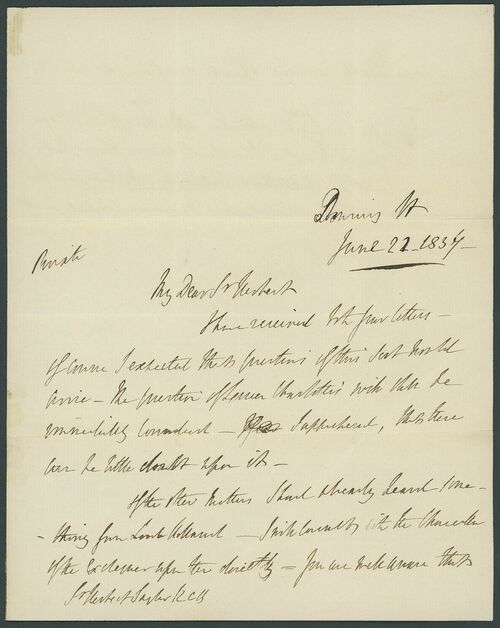 Downing St
June 21 - 1837 -
Private
My Dear Sr Herbert
I have received both your letters -
Of course I expected that questions of this sort would
arise - The question of Princess Charlotte's will shall be
immediately considered - I apprehend, that there
can be little doubt upon it -
Of the other matters I had already heard some-
-thing from Lord Holland - I will consult with the Chancellor
of the Exchequer upon them directly - You are well aware that
Sr Herbert Taylor KCB